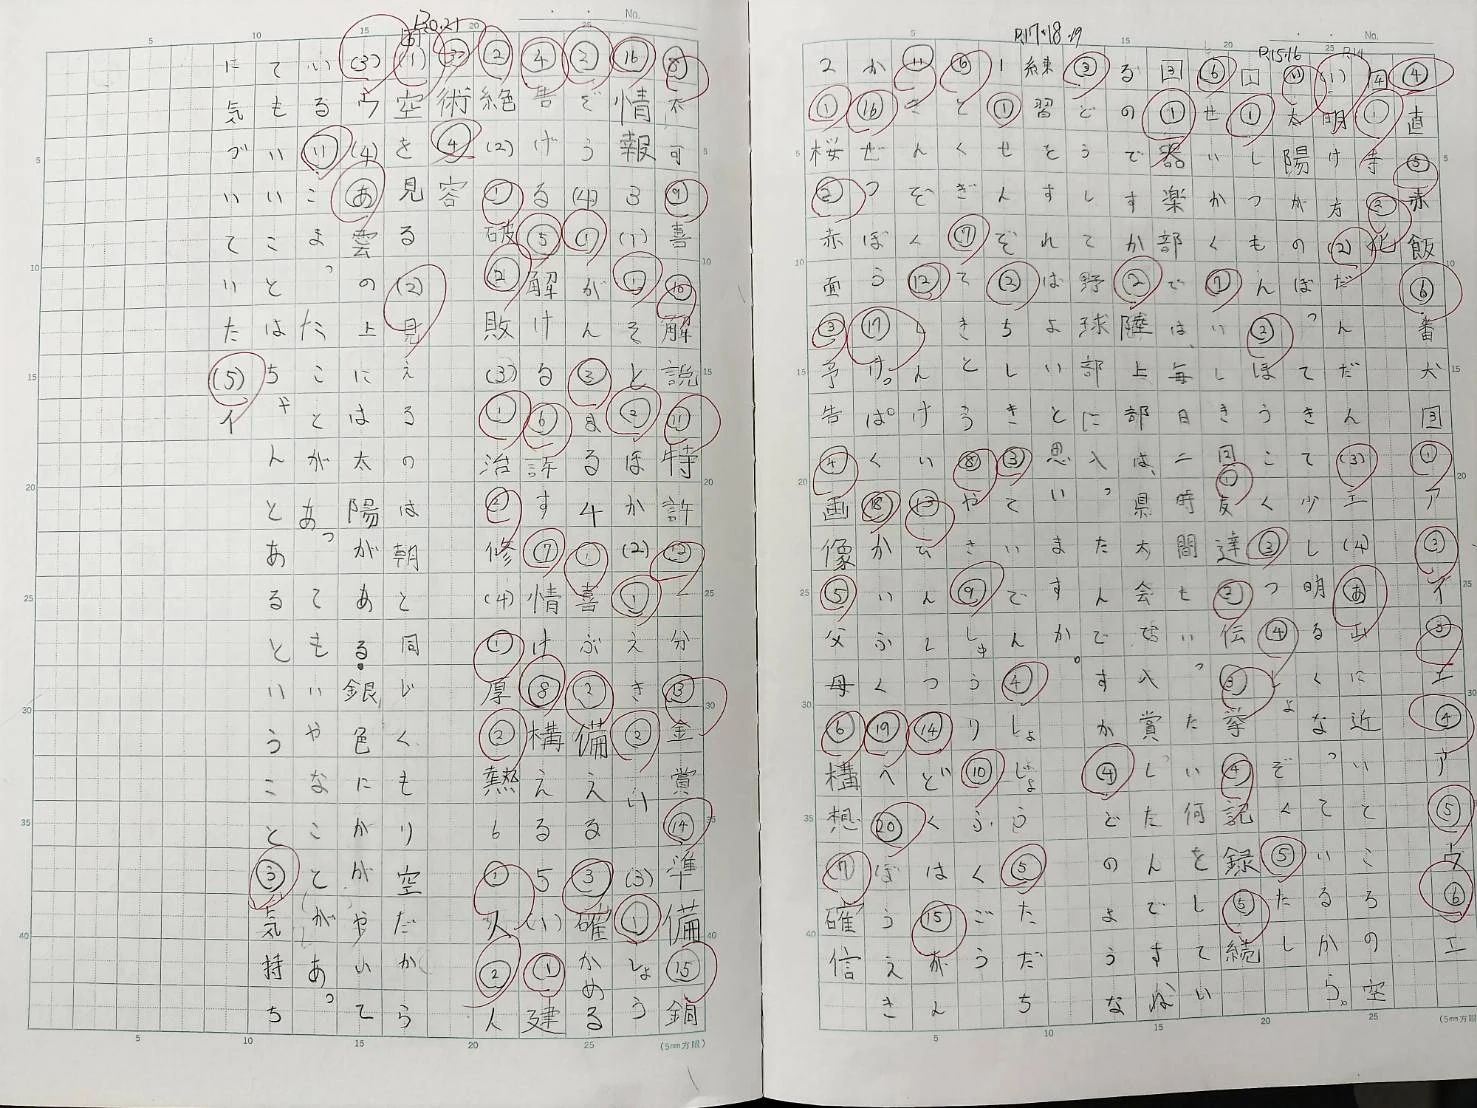 P.14
P.15.16
P.17.18.19
④直⑤赤飯⑥番犬3①ア②イ③エ④ア⑤ウ⑥エ
4①寺②北
(1)明け方(2)だんだん(3)エ(4)あ山に近いところの空
太陽がのぼってきて少し明るくなっているから。
1①しつもん②ほうこく③
⑥せいかく⑦いしき2①友達②伝③挙④記録⑤続
3①器楽部では、毎日二時間も、いったい何をしてい
るのですか②陸上部は、県大会で入賞したんです
③どうして野球部に入ったんですか④どのような
練習をすればよいと思いますか。
1①せんぞ②ちしき③ていでん④しょう⑤ただち
⑥とくぎ⑦てきとう⑧やさい⑨しゅうり⑩ふくごう
⑪きんぞく⑫しんけい⑬ひんしつ⑭どくは⑮がん
か⑯ぜつぼう⑰けっぱく⑱かいふく⑲へ⑳ぼうえき
2①桜②赤面③予告④画像⑤父母⑥構想⑦確信
P20.21
⑧不可⑨喜⑩解説⑪特許⑫二分⑬金賞⑭準備⑮銅
⑯情報3(1)①そと②ほか(2)①えき②い(3)①しょう
②ぞう(4)①がん②まる4①喜ぶ②備える③確かめる
④告げる⑤解ける⑥許す⑦情け⑧構える5(1)①建
②絶(2)①破②敗(3)①治②修(4)①厚②熱6①人②人
③術④容
(1)空を見る(2)見えるのは朝と同じくもり空だから
(3)ウ(4)あ雲の上には太陽がある。銀色にかがやいて
いる こまったことがあってもいやなことがあっ
てもいいことはちゃんとあるということ③気持ち
に気づいていた(5)イ